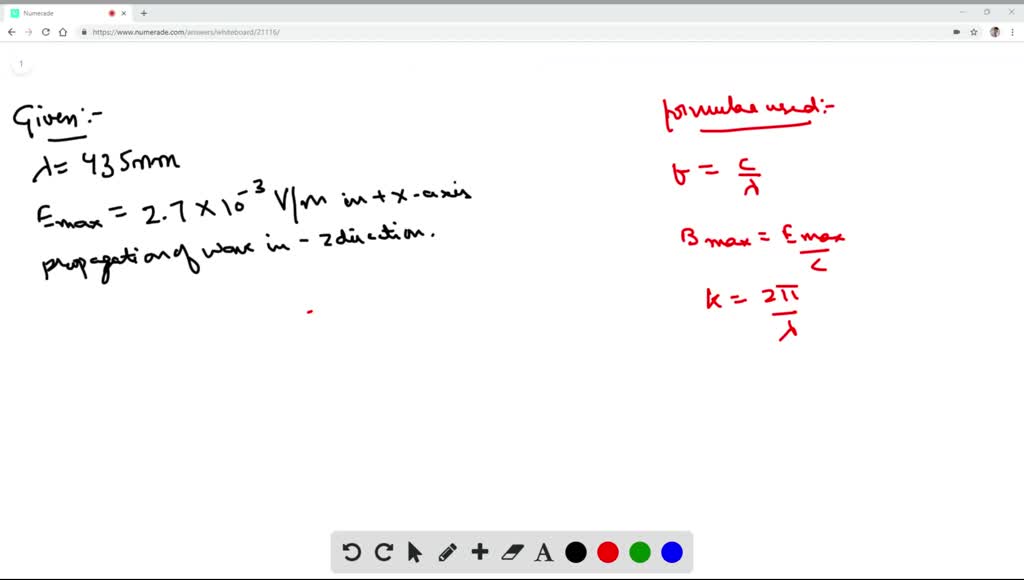 Numerade
https://www.numerade.com/answers/whiteboard/21116/
1
Given:-
λ = 435nm
Emax = 2.7 × 10⁻³ V/m in + x-axis
propagation of wave in - z direction.
formulae used:-
f = c/λ
Bmax = Emax/c
k = 2π/λ
A